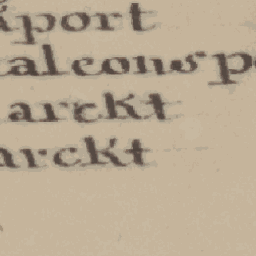 port
alcons p
arckt
arckt